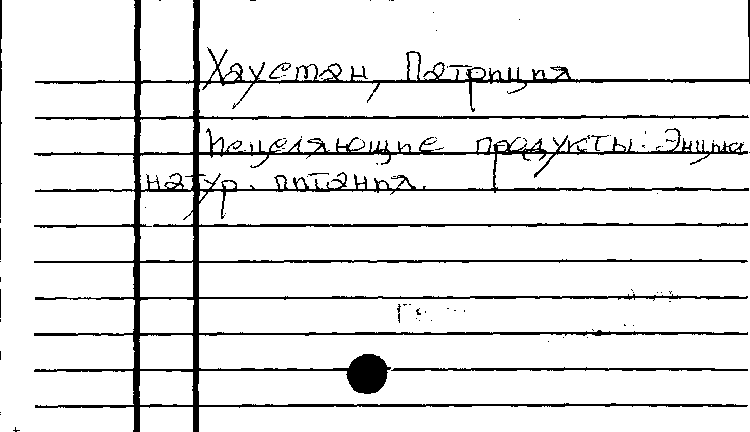 Хаустан, Патриция
Исцеляющие продукты: Энцик
натур. питания.